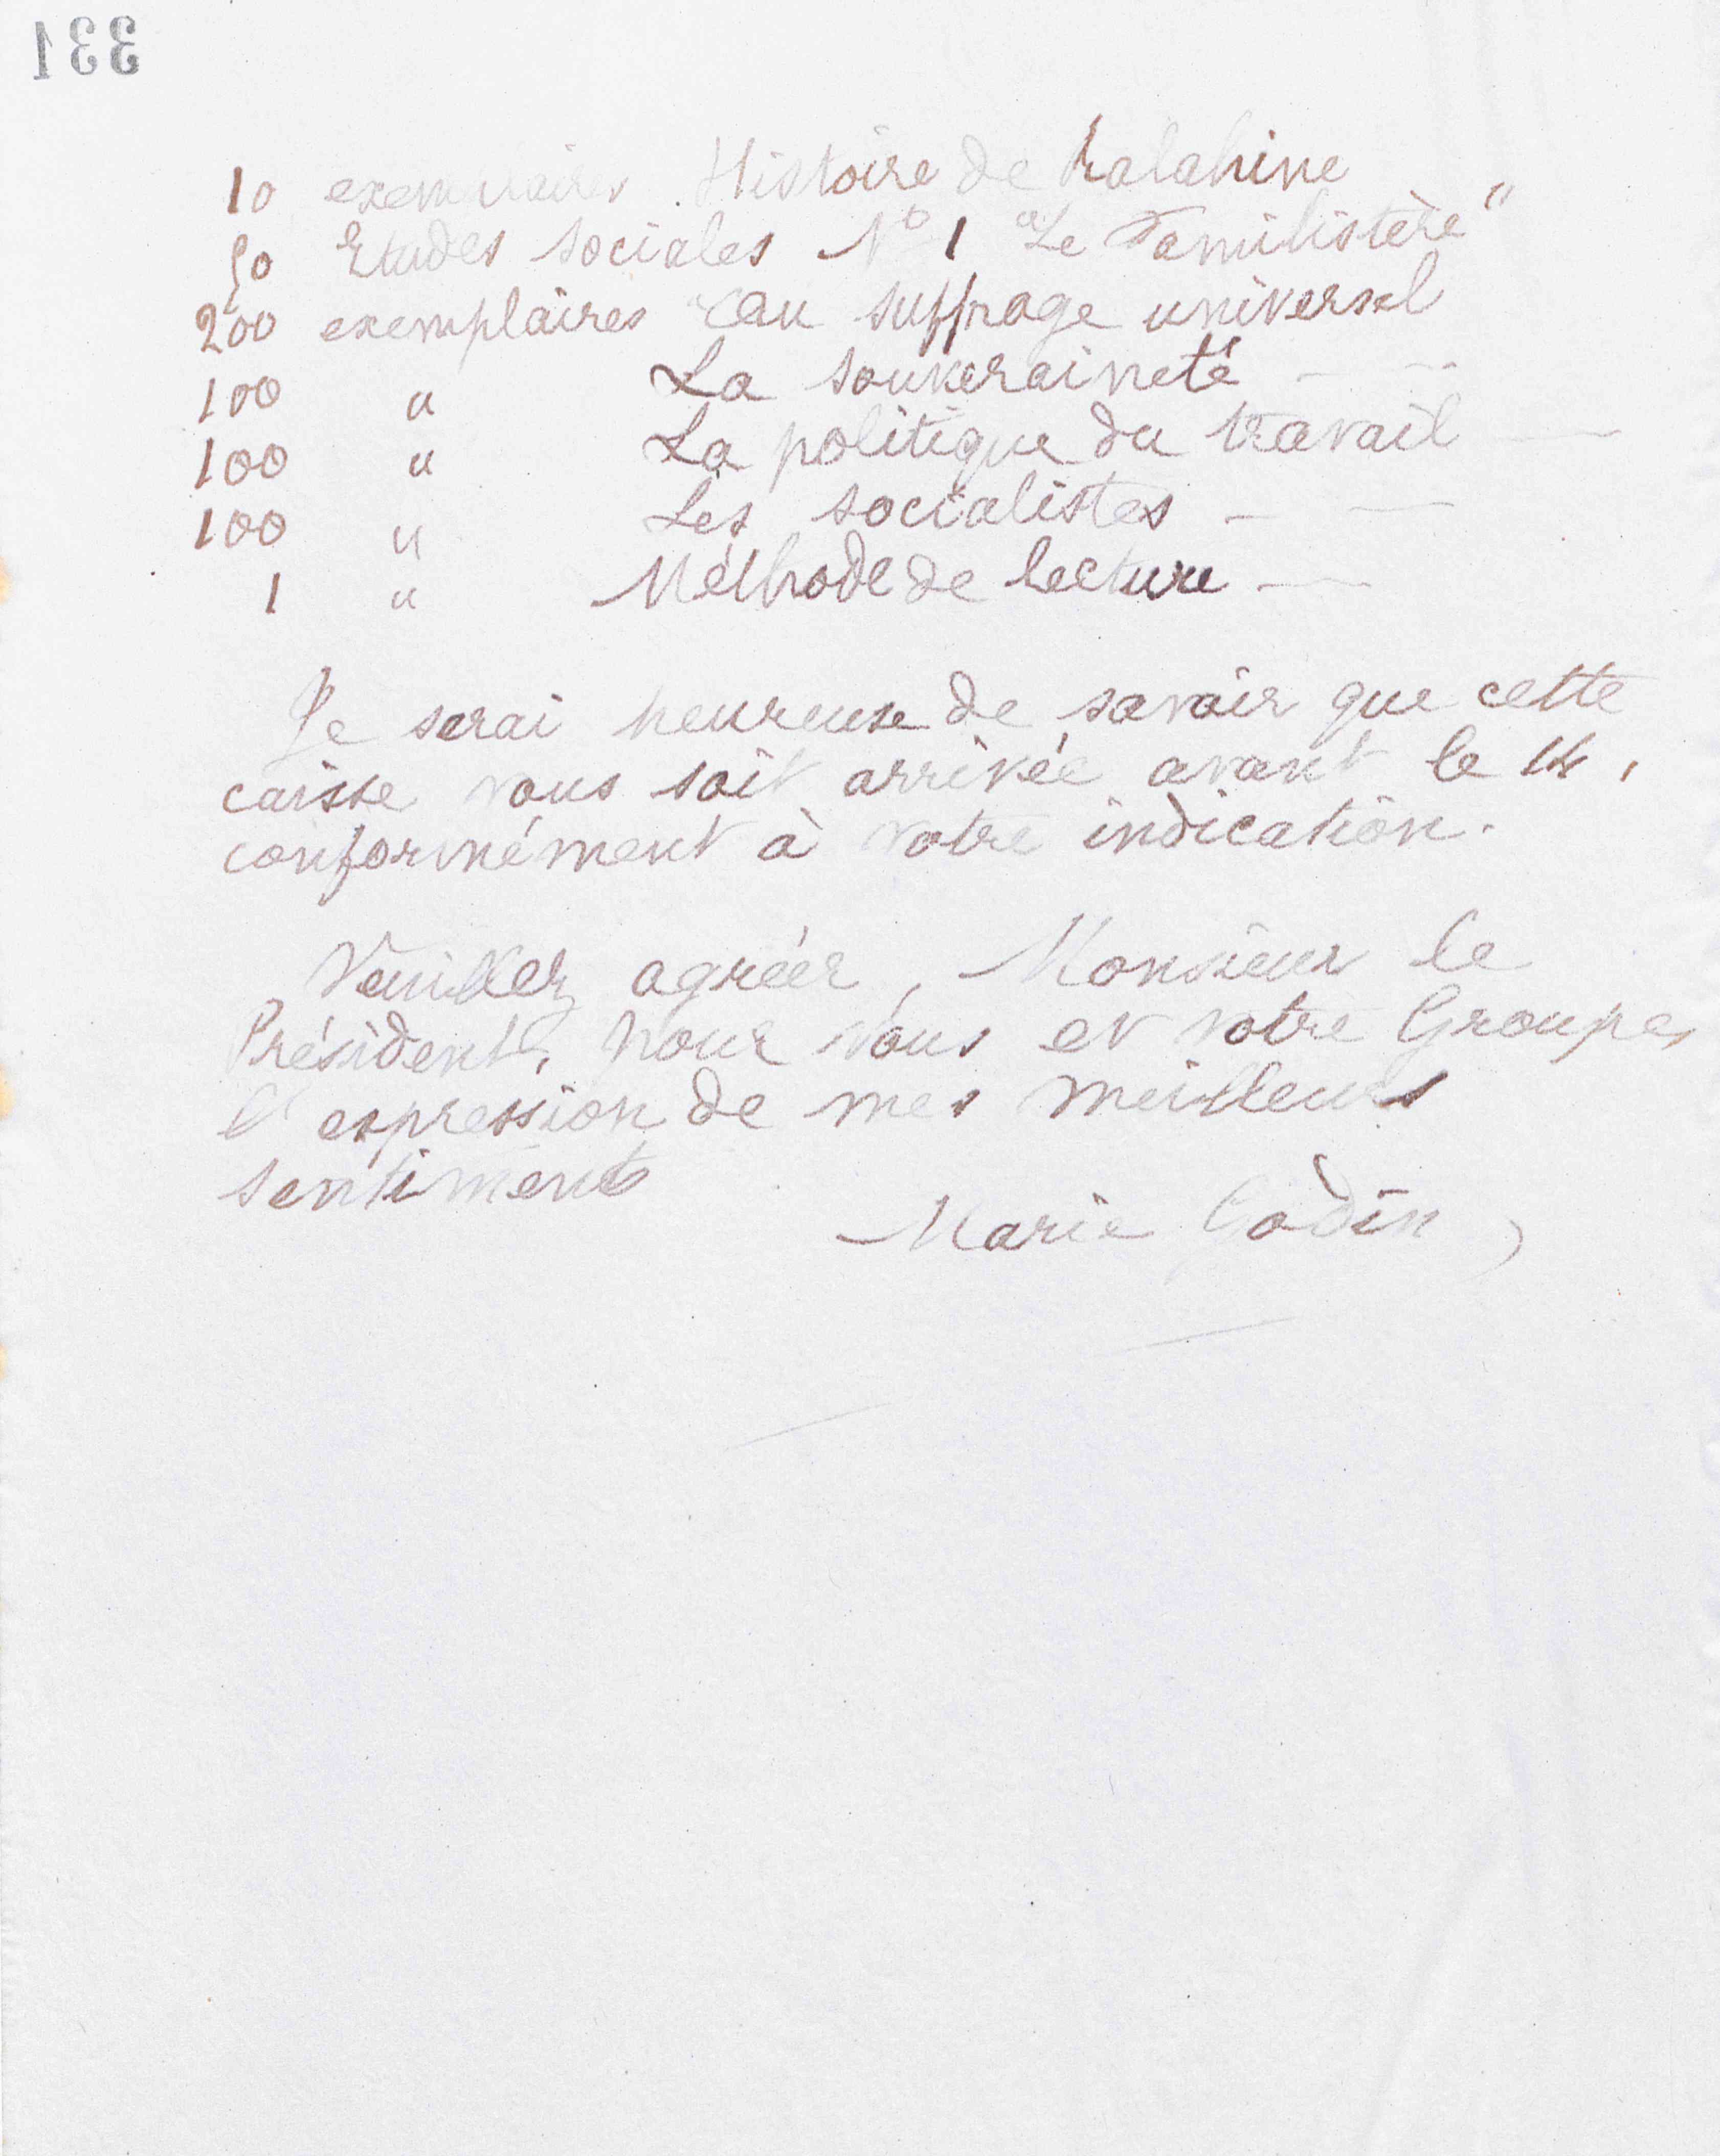 331
10 exemplaires Histoire de Ralahine
50 Etudes sociales N° 1 "Le Familistère"
200 exemplaires au suffrage universel
100 " La souveraineté - -
100 " La politique du travail -
100 " Les socialistes - -
1 " Méthode de lecture -
Je serai heureuse de savoir que cette
caisse vous soit arrivée avant le 14,
conformément à votre indication.
Veuillez agréer, Monsieur le
Président, pour vous et votre Groupe,
l'expression de mes meilleurs
sentiments
Marie Godin